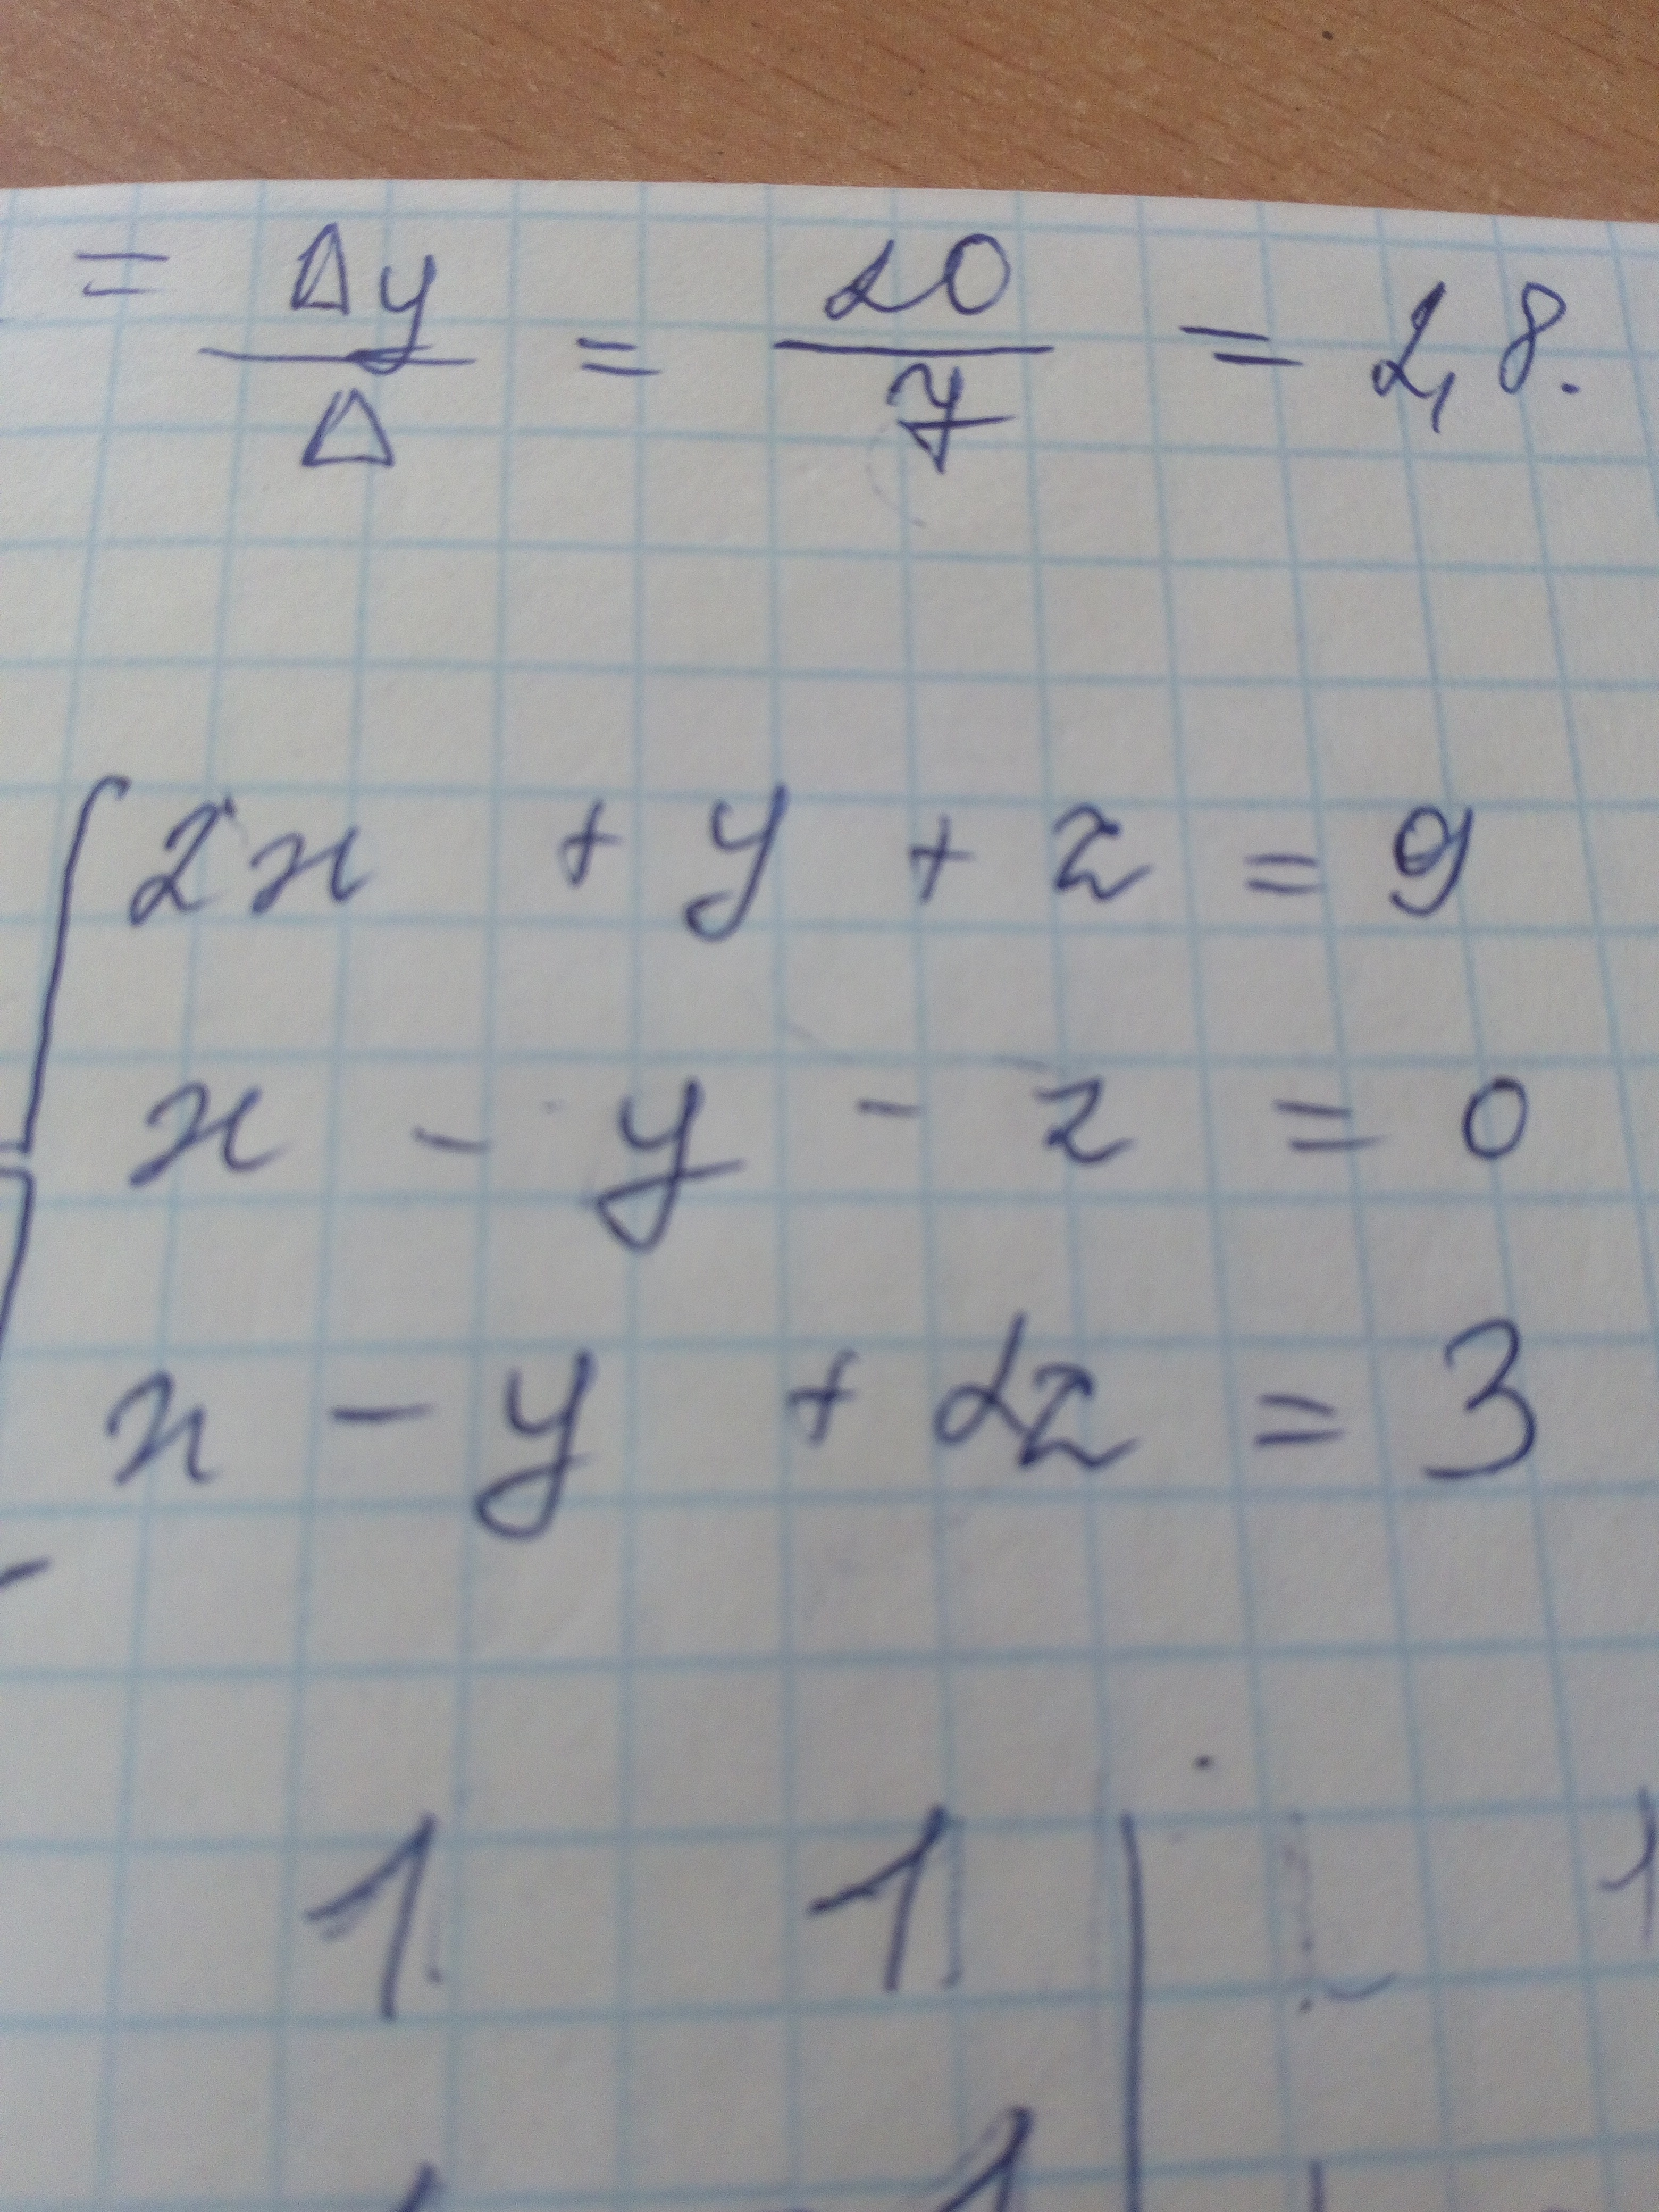 = Δy/Δ = 20/7 = 2,8.
2x + y + z = 9
x - y - z = 0
x - y + 2z = 3
1 1 | 1